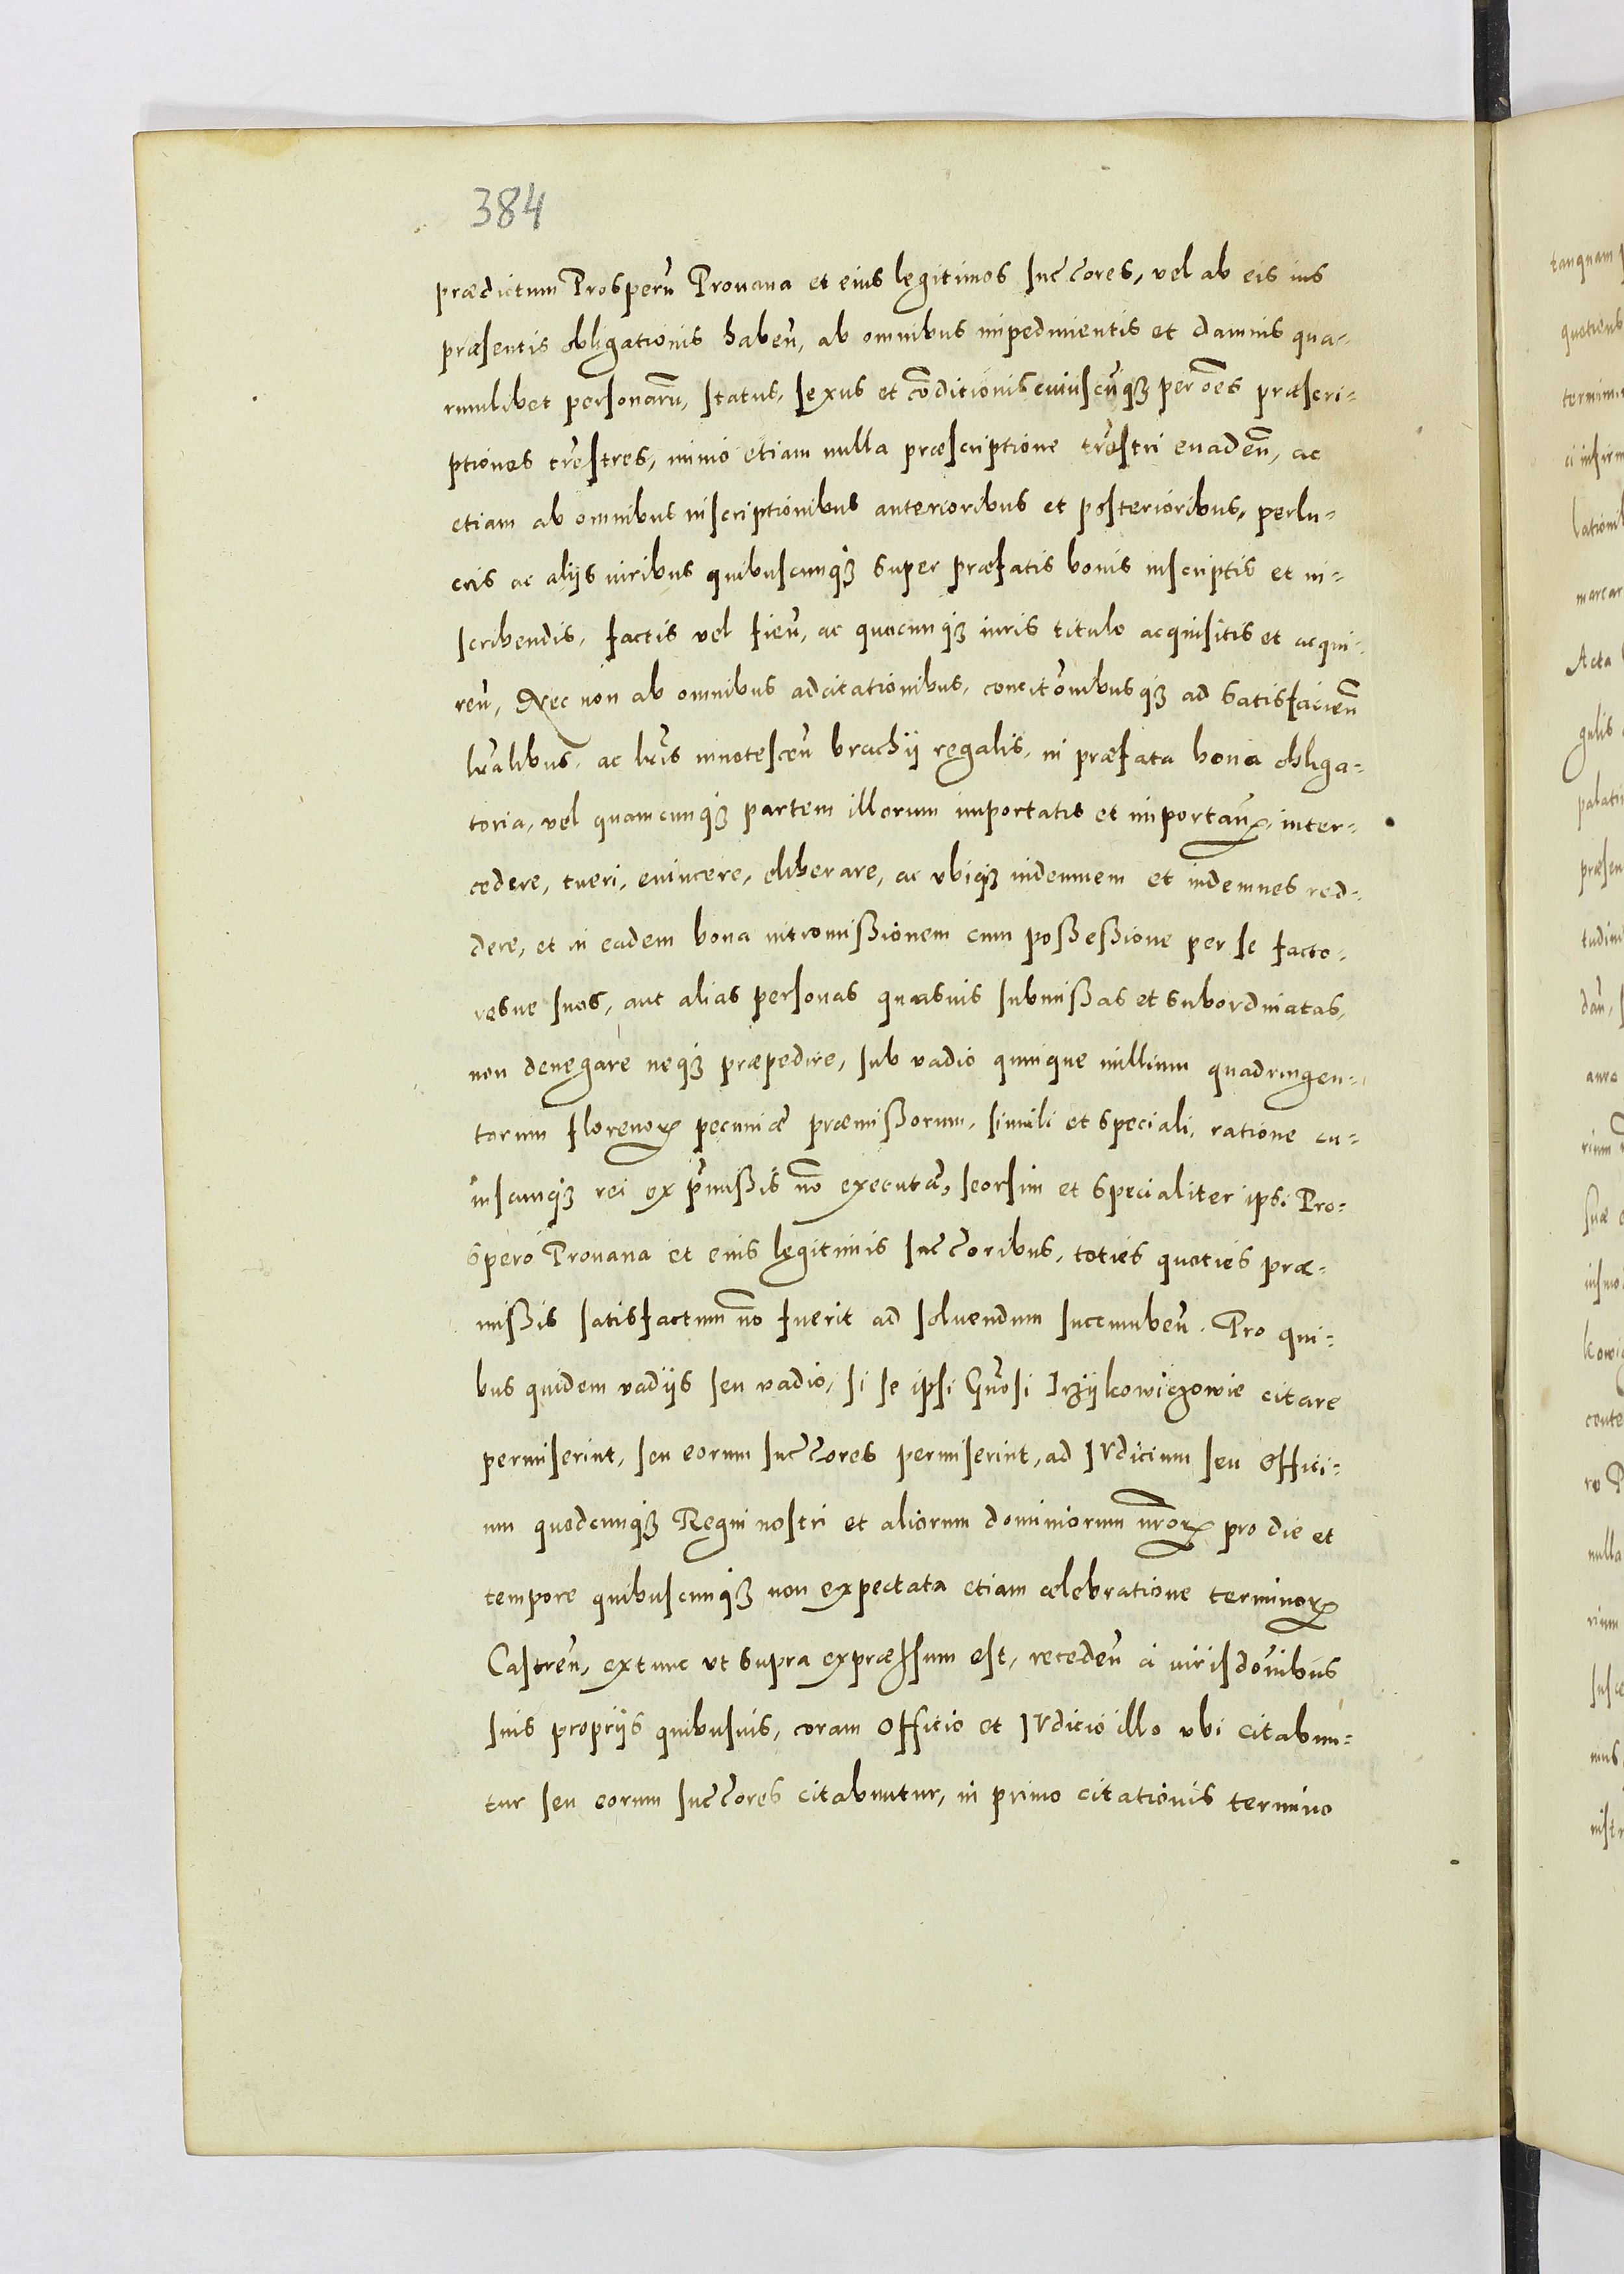 384
prædictum Prosperũ Prouana et eius legitimos sučcores, vel ab eis ius
præsentis obligationis habeñ, ab omnibus impedimentis et damnis qua-
rumlibet personarũ, status, sexus et cõditionis cuiuscũq₃ per oẽs præscri-
ptiones trẽstres, imio etiam nulla præscriptione trẽstri euadeñ, ac
etiam ab omnibus inscriptionibus anterioribus et posterioribus, perlu-
cris ac alijs iuribus quibuscunq₃ super præfatis bonis inscriptis et in-
scribendis, factis vel fieñ, ac quocunq₃ iuris titulo acquisitis et acqui-
reñ, Nec non ab omnibus adcitationibus, concitõnibusq₃ ad satisfacieñ
lrãlibus, ac lrĩs innotesceñ brachij regalis, in præfata bona obliga-
toria, vel quamcunq₃ partem illorum importatis et importañꝝ, inter-
cedere, tueri, euincere, eliberare, ac vbiq₃ indemnem et indemnes red-
dere, et in eadem bona intromißionem cum poßeßione per se facto-
resue suos, aut alias personas quasuis submißas et subordinatas,
non denegare neq₃ præpedire, sub vadio quinque millium quadringen-
torum florenoꝝ pecuniæ præmißorum, simili et speciali, ratione cu-
iuscunq₃ rei ex p̃mißis nõ executæ, seorsim et specialiter ipsi Pro-
spero Prouana et eius legitimis sučcoribus, toties quoties præ-
mißis satisfactum nõ fuerit ad soluendum succumbeñ. Pro qui-
bus quidem vadijs seu vadio, si se ipsi Gñosi Irzÿkowiczowie citare
permiserint, seu eorum sučcores permiserint, ad Iudicium seu Offici-
um quodcunq₃ Regni nostri et aliorum dominiorum nrõꝝ pro die et
tempore quibuscunq₃ non expectata etiam celebratione terminoꝝ
Castreñ, extunc vt supra expræssum est, recedeñ a iurisdõnibus
suis proprijs quibusuis, coram Officio et Iudicio illo vbi citabun-
tur seu eorum sučcores citabuntur, in primo citationis termino